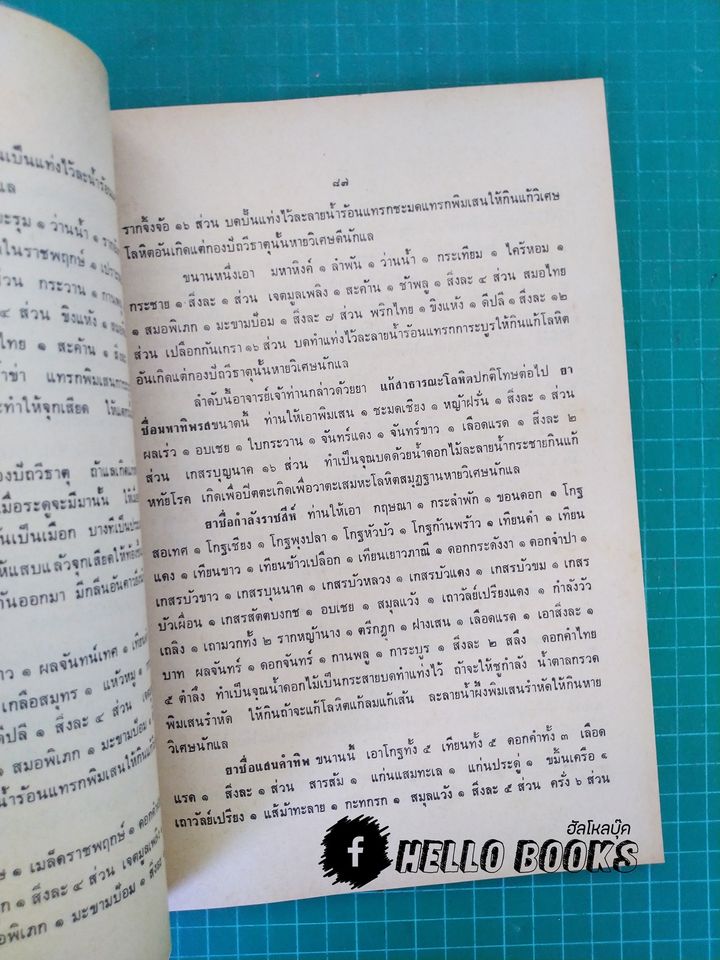 นเป็นแท่งไว้ละน้ำร้อน
ะรุม ๑ ว่านน้ำ ๑
ในราชพฤกษ์ ๑
ส่วน กระวาน ๑
๔ ส่วน ขิงแห้ง ๑
ไทย ๑ สะค้าน ๑
แทรกพิมเสน
ะทำให้จุกเสียด
องปัถวีธาตุ ถ้าแลเกิด
มื่อระดูจะมีมานั้น ให้
ันเป็นเมือก บางทีเป็น
ให้แสบแล้วจุกเสียดให้
กันออกมา มีกลิ่นอัน
าว ๑ ผลจันทน์เทศ ๑
เกลือสมุทร ๑ แห้วหมู ๑
ดีปลี ๑ สิ่งละ ๔ ส่วน
๑ สมอพิเภก ๑ มะขามป้อม ๑
น้ำร้อนแทรกพิมเสนให้กินแก้
๑ เมล็ดราชพฤกษ์ ๑
๑ สิ่งละ ๔ ส่วน เจตมูลเพลิง
อพิเภก ๑ มะขามป้อม ๑ สิ่งละ
๘๗
รากจิงจ้อ ๑๖ ส่วน บดปั้นแท่งไว้ละลายน้ำร้อนแทรกชะมดแทรกพิมเสนให้กินแก้วิเศษ
โลหิตอันเกิดแต่กองปัถวีธาตุนั้นหายวิเศษดีนักแล
ขนานหนึ่งเอา มหาหิงค์ ๑ ลำพัน ๑ ว่านน้ำ ๑ กระเทียม ๑ ไคร้หอม ๑
กระชาย ๑ สิ่งละ ๑ ส่วน เจตมูลเพลิง ๑ สะค้าน ๑ ช้าพลู ๑ สิ่งละ ๔ ส่วน สมอไทย
๑ สมอพิเภก ๑ มะขามป้อม ๑ สิ่งละ ๗ ส่วน พริกไทย ๑ ขิงแห้ง ๑ ดีปลี ๑ สิ่งละ ๑๒
ส่วน เปลือกกันเกรา ๑๖ ส่วน บดทำแท่งไว้ละลายน้ำร้อนแทรกการะบูรให้กินแก้โลหิต
อันเกิดแต่กองปัถวีธาตุนั้นหายวิเศษนักแล
ลำดับนี้อาจารย์เจ้าท่านกล่าวด้วยยา แก้สาธารณะโลหิตปกติโทษต่อไป ยา
ชื่อมหาทิพรสขนาดนี้ ท่านให้เอาพิมเสน ๑ ชะมดเชียง ๑ หญ้าฝรั่น ๑ สิ่งละ ๑ ส่วน
ผลเร่ว ๑ อบเชย ๑ ใบกระวาน ๑ จันทร์แดง ๑ จันทร์ขาว ๑ เลือดแรด ๑ สิ่งละ ๒
ส่วน เกสรบุญนาค ๑๖ ส่วน ทำเป็นจุณบดด้วยน้ำดอกไม้ละลายน้ำกระชายกินแก้
หทัยโรค เกิดเพื่อปิตตะเกิดเพื่อวาตะเสมหะโลหิตสมุฏฐานหายวิเศษนักแล
ยาชื่อกำลังราชสีห์ ท่านให้เอา กฤษณา ๑ กระลำพัก ๑ ขอนดอก ๑ โกฐ
สอเทศ ๑ โกฐเชียง ๑ โกฐพุงปลา ๑ โกฐหัวบัว ๑ โกฐก้านพร้าว ๑ เทียนดำ ๑ เทียน
แดง ๑ เทียนขาว ๑ เทียนข้าวเปลือก ๑ เทียนเยาวภาณี ๑ ดอกกระดังงา ๑ ดอกจำปา ๑
เกสรบัวขาว ๑ เกสรบุนนาค ๑ เกสรบัวหลวง ๑ เกสรบัวแดง ๑ เกสรบัวขม ๑ เกสร
บัวเผื่อน ๑ เกสรสัตตบงกช ๑ อบเชย ๑ สมุลแว้ง ๑ เถาวัลย์เปรียงแดง ๑ กำลังวัว
เถลิง ๑ เถามวกทั้ง ๒ รากหญ้านาง ๑ ตรีกฎุก ๑ ฝางเสน ๑ เลือดแรด ๑ เอาสิ่งละ ๑
บาท ผลจันทร์ ๑ ดอกจันทร์ ๑ กานพลู ๑ การะบูร ๑ สิ่งละ ๒ สลึง ดอกคำไทย
๕ ตำลึง ทำเป็นจุณน้ำดอกไม้เป็นกระสายบดทำแท่งไว้ ถ้าจะให้ชูกำลัง น้ำตาลกรวด
พิมเสนรำหัด ให้กินถ้าจะแก้โลหิตแก้ลมแก้เส้น ละลายน้ำผึ้งพิมเสนรำหัดให้กินหาย
วิเศษนักแล
ยาชื่อแสนคำทิพ ขนานนี้ เอาโกฐทั้ง ๕ เทียนทั้ง ๕ ดอกคำทั้ง ๓ เลือด
แรด ๑ สิ่งละ ๑ ส่วน สารส้ม ๑ แก่นแสมทะเล ๑ แก่นประดู่ ๑ ขมิ้นเครือ ๑
เถาวัลย์เปรียง ๑ แส้ม้าทะลาย ๑ กะทกรก ๑ สมุลแว้ง ๑ สิ่งละ ๕ ส่วน ครั่ง ๖ ส่วน
ฮัลโหลบุ๊ค
f HELLO BOOKS